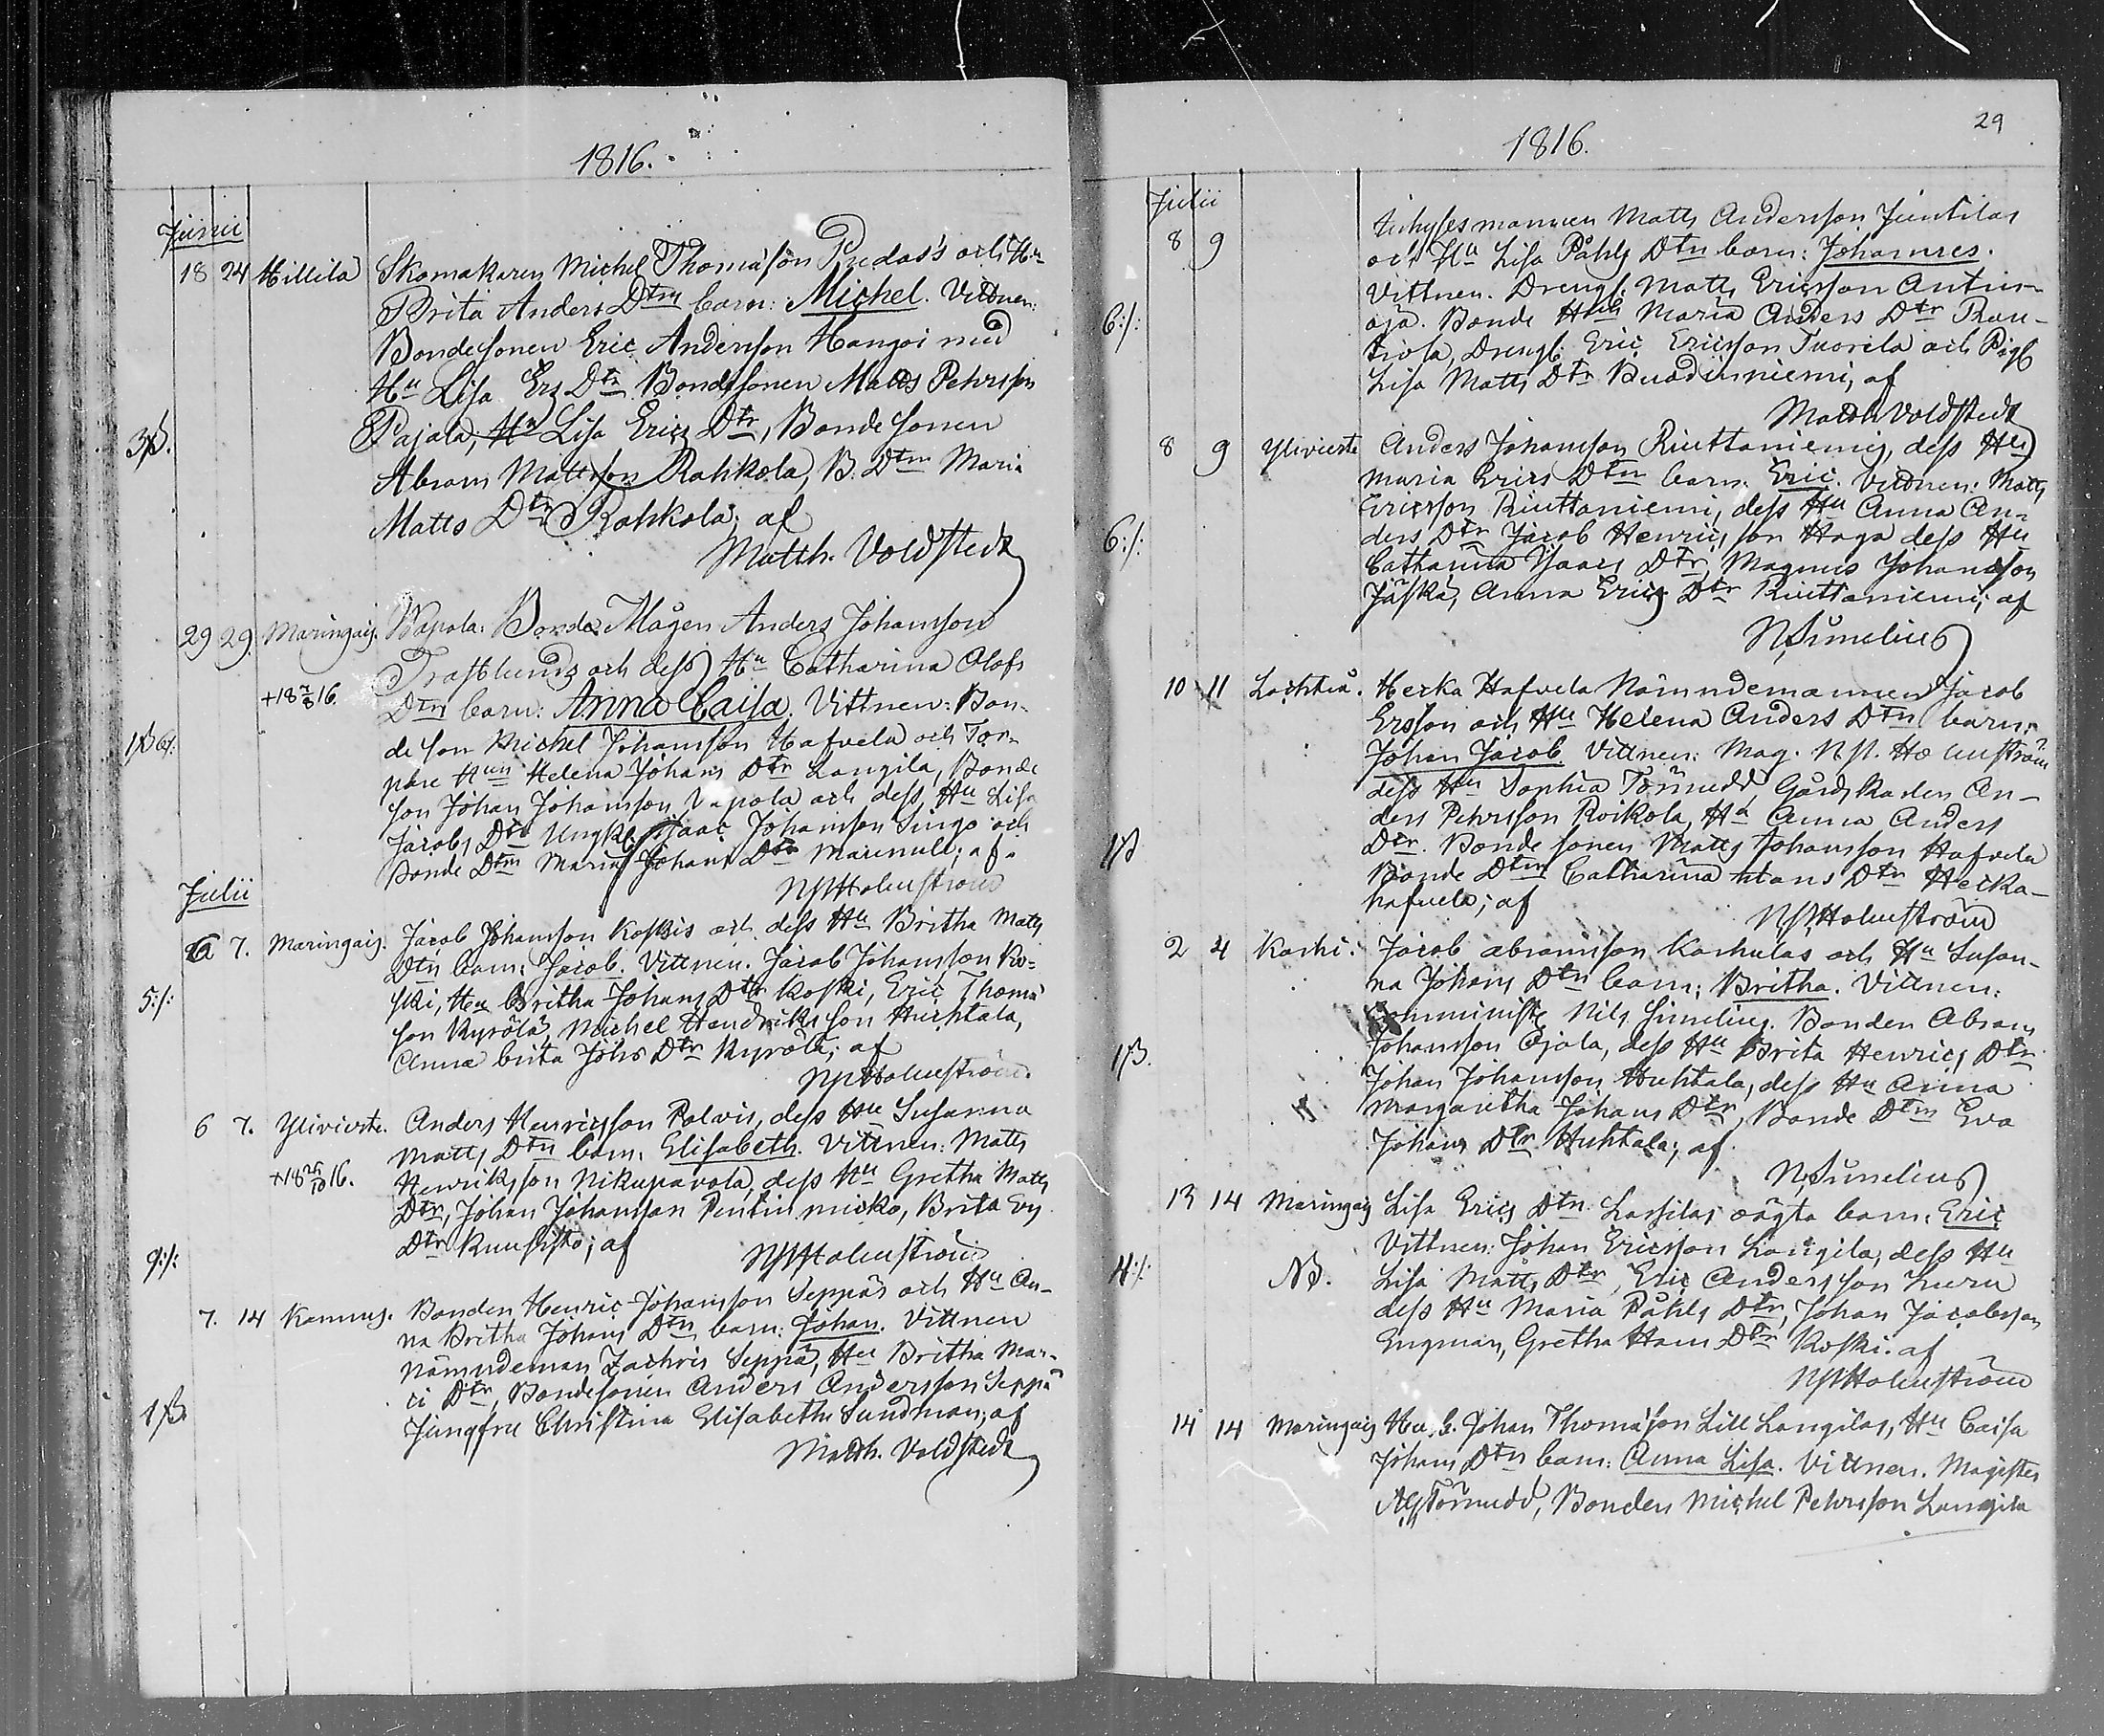 1816.
Junii
18 24 Hillilä Skomakaren Michel Thomasson Pudas's och Hu
Brita Anders Dtrs barn: Michel. Vittnen:
Bondesonen Eric Andersson Hangoi med
Hu Lisa Ers Dtr Bondesonen Matts Pehrsson
3β. Pajala, Hu Lisa Erics Dtr, Bonde sonen
Abram Mattsson Rahkola, B. Dtrn Maria
Matts Dtr Rahkola; af
Matth. Voldstedt
29 29. Maringais. Wapola. Bonde Mågen Anders Johansson
Trasklunds och dess Hu Catharina Olofs
+18 7/8 16. Dtrs barn: Anna Caisa. Vittnen: Bon-
de son Michel Johansson Hafvela och Tor-
pare Hun Helena Johans Dtr Langila, Bonde
son Johan Johansson Vapola och dess Hu Lisa
Jacobs Dtr Ungk. Isaac Johansson Singo och
Bonde Dtrn Maria Johans Dtr Marinull; af
NHolmström
Julii
6 7. Maringais. Jacob Johansson Koskis och dess Hu Britha Matts
Dtrs barn: Jacob. Vittnen. Jacob Johansson Ko-
5:/: ski, Hu Britha Johans Dtr Koski, Eric Thoma
son Kyrölä, Michel Hendriksson Huhtala,
Anna brita Johs Dtr Kyrölä; af
NHolmström.
6 7. Ylivieste. Anders Henricsson Palvis, dess Hu Susanna
Matts Dtrs barn. Elisabeth. Vittnen: Matts
+18 26/10 16. Henriksson Nikupavola, dess Hu Gretha Matts
Dtr, Johan Johansson Pentin micko, Brita Ers
9:/: Dtr Kuusisto; af NHolmström
7. 14 Kannus. Bonden Henric Johansson Seppäs och Hu An-
na Britha Johans Dtrs barn: Johan. Vittnen
Nämndeman Zachris Seppä, Hu Britha Mar-
ci Dtr, Bondesonen Anders Andersson Seppä
1β. Jungfru Christina Elisabeth Sundman; af
Matth. Voldstedt
29
1816.
Julii
8 9 Inhysesmannen Matts Andersson Juntilas
och Hu Lisa Påhls Dtrs barn: Johannes.
Vittnen. Drengl. Matts Ericsson Antin-
6:/: oja. Bonde Hu Maria Anders Dtr Rau-
tiola, Drengl. Eric Ericsson Tuorila och Pigl
Lisa Matts Dtr af
Matth Voldstedt
8 9 Ylivieste Anders Johansson Riuttaniemis, dess Hu
Maria Erics Dtrs barn. Eric. Vittnen: Matts
Ericsson Riuttaniemi, dess Hu Anna An-
6:/: ders Dtr Jacob Henricsson Haga dess Hu
Catharina Isaacs Dtr, Magnus Johansson
Jäskä, Anna Erics Dtr Riuttaniemi; af
N,Sunelius
10 11 Lochteå. Hecka Hafvela Nämndemannen Jacob
Ersson och Hu Helena Anders Dtrs barn:
Johan Jacob. Vittnen: Mag. N. Holmström
dess Hu Sophia Törnudd, Gårdskarlen An-
ders Pehrsson Roikola, Hu Anna Anders
1β Dtr. Bonde sonen Matts Johansson Hafvela
Bonde Dtrn Catharina Hans Dtr Hecka-
hafvela; af NHolmström
2 4 Karhi. Jacob Abramsson Karhulas och Hu Susan-
na Johans Dtrs barn: Britha. Vittnen:
Comminist. Nils Sunelius. Bonden Abram
1β. Johansson Ojala, dess Hu Brita Henrics Dtr
Johan Johansson Huhtala, dess Hu Anna
Margaretha Johans Dtr, Bonde Dtrn Eva
Johans Dtr Huhtala; af
N,Sunelius
13 14 Maringais Lisa Erics Dtrs Lassilas oägta barn: Eric
Vittnen: Johan Ericsson Langila, dess Hu
4:/: NB. Lisa Matts Dtr, Eric Andersson
dess Hu Maria Påhls Dtr, Johan Jacobsson
Engman, Gretha Hans Dtr Koski. af
NHolmström
14 14 Maringais Johan Thomasson Lill Langilas, Hu Caisa
Johans Dtrs barn: Anna Lisa. Vittnen. Magister
Törnudd, Bonden Michel Pehrsson Langila